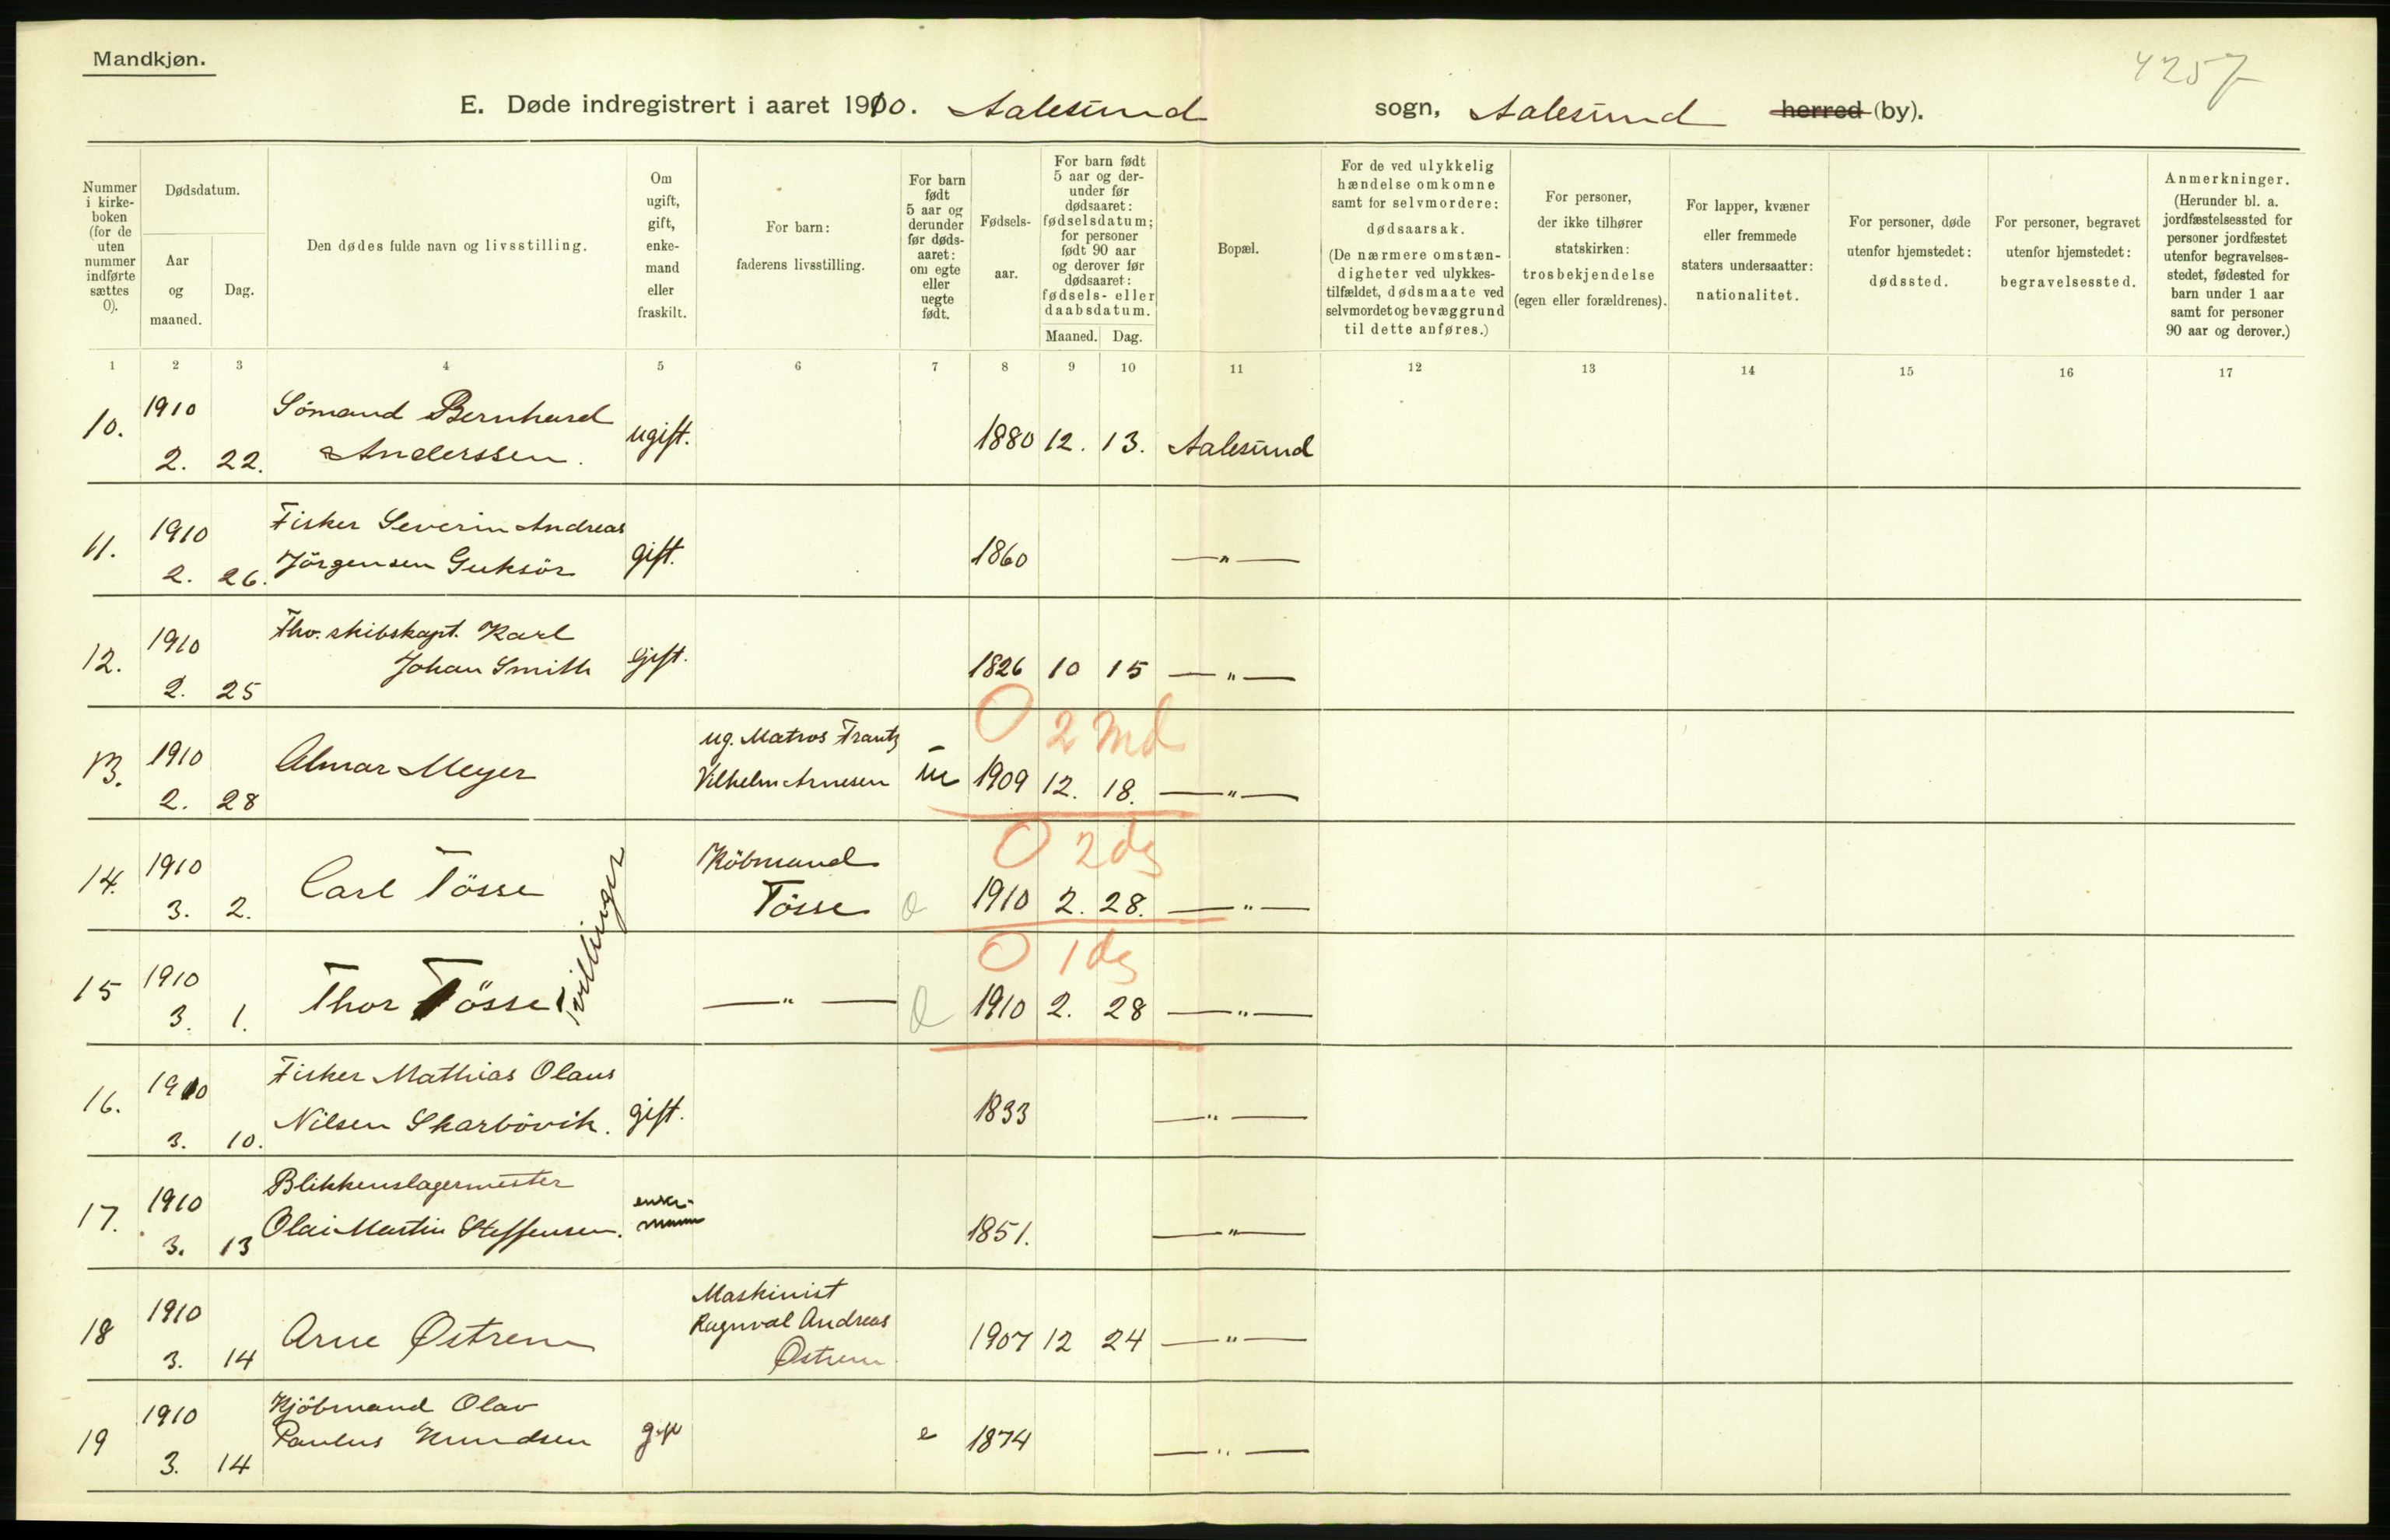 Mandkjøn.
4257
E. Døde indregistrert i aaret 1910. Aalesund sogn, Aalesund herred (by).
Nummer i kirke-boken (for de uten nummer indførte sættes 0).
Dødsdatum.
Aar og maaned.
Dag.
Den dødes fulde navn og livsstilling.
Om ugift, gift, enke-mand eller fraskilt.
For barn: faderens livsstilling.
For barn født 5 aar og derunder før døds-aaret: om egte eller uegte født.
Fødsels-aar.
For barn født 5 aar og der-under før dødsaaret: fødselsdatum; for personer født 90 aar og derover før dødsaaret: fødsels- eller daabsdatum.
Maaned. Dag.
Bopæl.
For de ved ulykkelig hændelse omkomne samt for selvmordere: dødsaarsak. (De nærmere omstæn-digheter ved ulykkes-tilfældet, dødsmaate ved selvmordet og bevæggrund til dette anføres.)
For personer, der ikke tilhører statskirken: trosbekjendelse (egen eller forældrenes).
For lapper, kvæner eller fremmede staters undersaatter: nationalitet.
For personer, døde utenfor hjemstedet: dødssted.
For personer, begravet utenfor hjemstedet: begravelsessted.
Anmerkninger. (Herunder bl. a. jordfæstelsessted for personer jordfæstet utenfor begravelses-stedet, fødested for barn under 1 aar samt for personer 90 aar og derover.)
1 2 3 4 5 6 7 8 9 10 11 12 13 14 15 16 17
10. 1910 2. 22. Sömand Bernhard Anderssen. ugift. 1880 12. 13. Aalesund
11. 1910 2. 26. Fisker Severin Andreas Jörgensen Guksör gift. 1860 —"—
12. 1910 2. 25 Fhv. skibskapt. Karl Johan Smith Gift. 1826 10 15 —"—
0 2 md
13. 1910 2. 28 Almar Meyer ug. Matros Frantz Vilhelm Arnesen u 1909 12. 18. —"—
0 2 dg
14. 1910 3. 2. Carl Tösse Tvillinger Köbmand Tösse 1910 2. 28. —"—
0 1 dg
15 1910 3. 1. Thor Tösse —"— 1910 2. 28 —"—
16. 1910 3. 10. Fisker Mathias Olaus Nilsen Skarbövik. gift. 1833 —"—
17. 1910 3. 13 Blikkenslagermester Olai Martin Steffensen. enke-mann 1851. —"—
18 1910 3. 14 Arne Østrem Maskinist Ragnval Andreas Østrem 1907 12 24 —"—
19 1910 3. 14 Kjöbmand Olav Paulus Knudsen gift e 1874 —"—